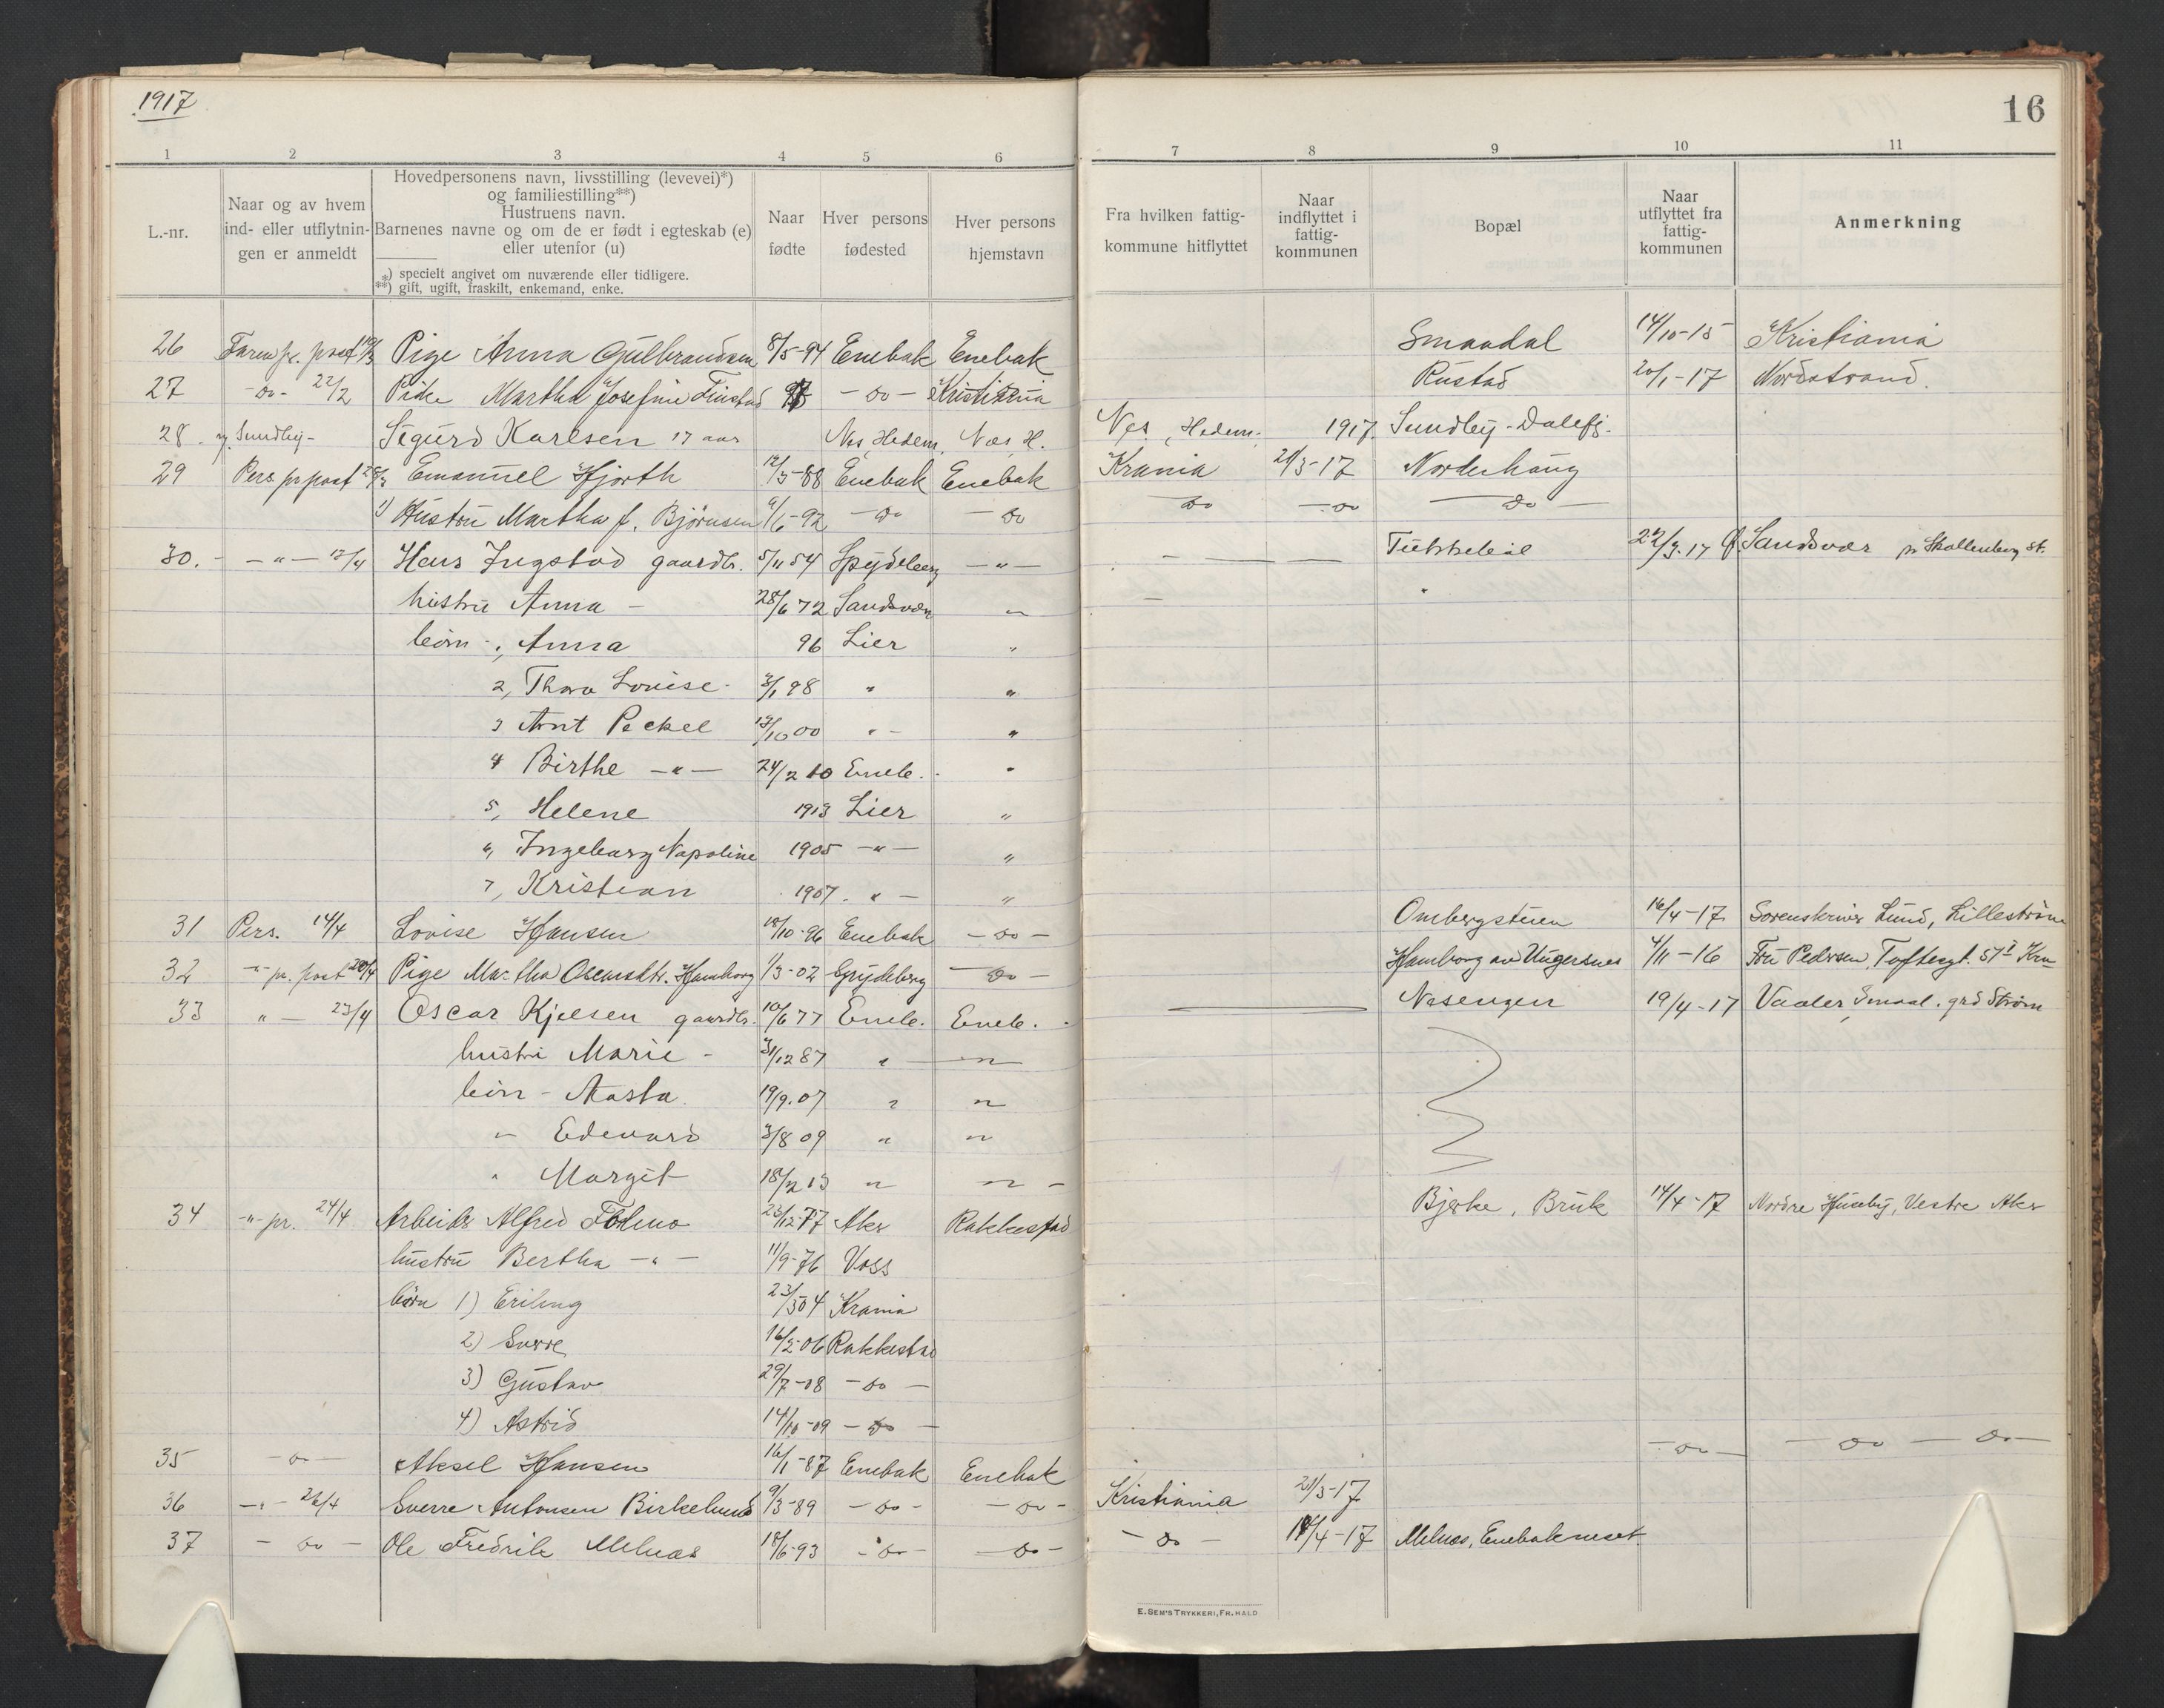 1917
16
1 2 3 4 5 6 7 8 9 10 11
L.-nr.
Naar og av hvem
ind- eller utflytnin-
gen er anmeldt
Hovedpersonens navn, livsstilling (levevei)*)
og familiestilling**)
Hustruens navn.
Barnenes navne og om de er født i egteskab (e)
eller utenfor (u)
*) specielt angivet om nuværende eller tidligere.
**) gift, ugift, fraskilt, enkemand, enke.
Naar
fødte
Hver persons
fødested
Hver persons
hjemstavn
Fra hvilken fattig-
kommune hitflyttet
Naar
indflyttet i
fattig-
kommunen
Bopæl
Naar
utflyttet fra
fattig-
kommunen
Anmerkning
26 Faren pr. post Pige Anna Gulbrandsen 8/5-94 Enebak Enebak Smaadal 14/10-15 Kristiania
27 -do- 22/2 Pike Martha Josefine Finstad -do- Kristiania Rustad 20/1-17 Nordstrand.
28 Sundby- Sigurd Karlsen 17 aar Nes, Hedem. Nes, H. Nes, Hedem. 1917. Sundby-Dalefj.
29 Pers pr post Emanuel Hjorth 12/3-88 Enebak Enebak Krania 21/3-17 Norderhaug
1) Hustru Martha f. Björnsen 9/6-92 -do -do do -do -do-
30. -"- 12/4 Hans Ingstad gaardbr. 5/11 54 Spydeberg -"- 22/3.17 Sandsvær pr Skollenborg st.
hustru Anna - 28/6 72 Sandsvær "
børn 1, Anna 96 Lier "
2, Thora Louise 3/1 98 " "
3 Arnt Peckel 13/10 00 " - "
4 Birthe -"- 24/2 10 Eneb. "
5, Helene 1913 Lier "
6, Ingeborg Napoline 1905 -"- "
7, Kristian 1907. " - "
31 Pers. 14/4 Lovise Hansen 18/10-96 Enebak -do- Ombergstuen 16/4-17 Sorenskriver Lund, Lilleström
32 -"- pr. post 20/4 Pige Martha Hamborg 1/3-02 Spydeberg -do- Hamborg av Ungersnes 4/11-16 Fru Pedersen, Toftesgt. 57 I Kra
33 " - 23/4 Oscar Kjelsen gaardbr. 10/6 77 Eneb. Eneb. Nesengen 19/4-17 Vaaler, Smaal. grd Strøm
hustru Marie - 31/12 87 " "
børn - Aasta 19/9.07 " "
" Edevard 3/8 09 " "
" Margit 18/2 13 " " -
34 -"- pr. 24/4 Arbeider Alfred 23/12-77 Aker Rakkestad Bjerke, Bruk 14/4-17 Nordre Huseby, Vestre Aker
hustru Bertha -"- 11/9-76 Voss
børn 1) Erling 23/5 04 Krania
2) Sverre 16/2-06 Rakkestad
3) Gustav 29/7-08 -do-
4) Astrid 14/10-09 -do-
35 -do- Aksel Hansen 16/1-87 Enebak Enebak -do- -do- do-
36 -"- 26/4 Sverre Antonsen Birkelund 9/3-89 -do- -do- Kristiania 21/3-17
37 -do- Ole Fredrik Melnæs 18/6-93 -do- -do- -do- 18/4-17 Melnæs, Enebakneset.
E. SEM'S TRYKKERI, FR.HALD